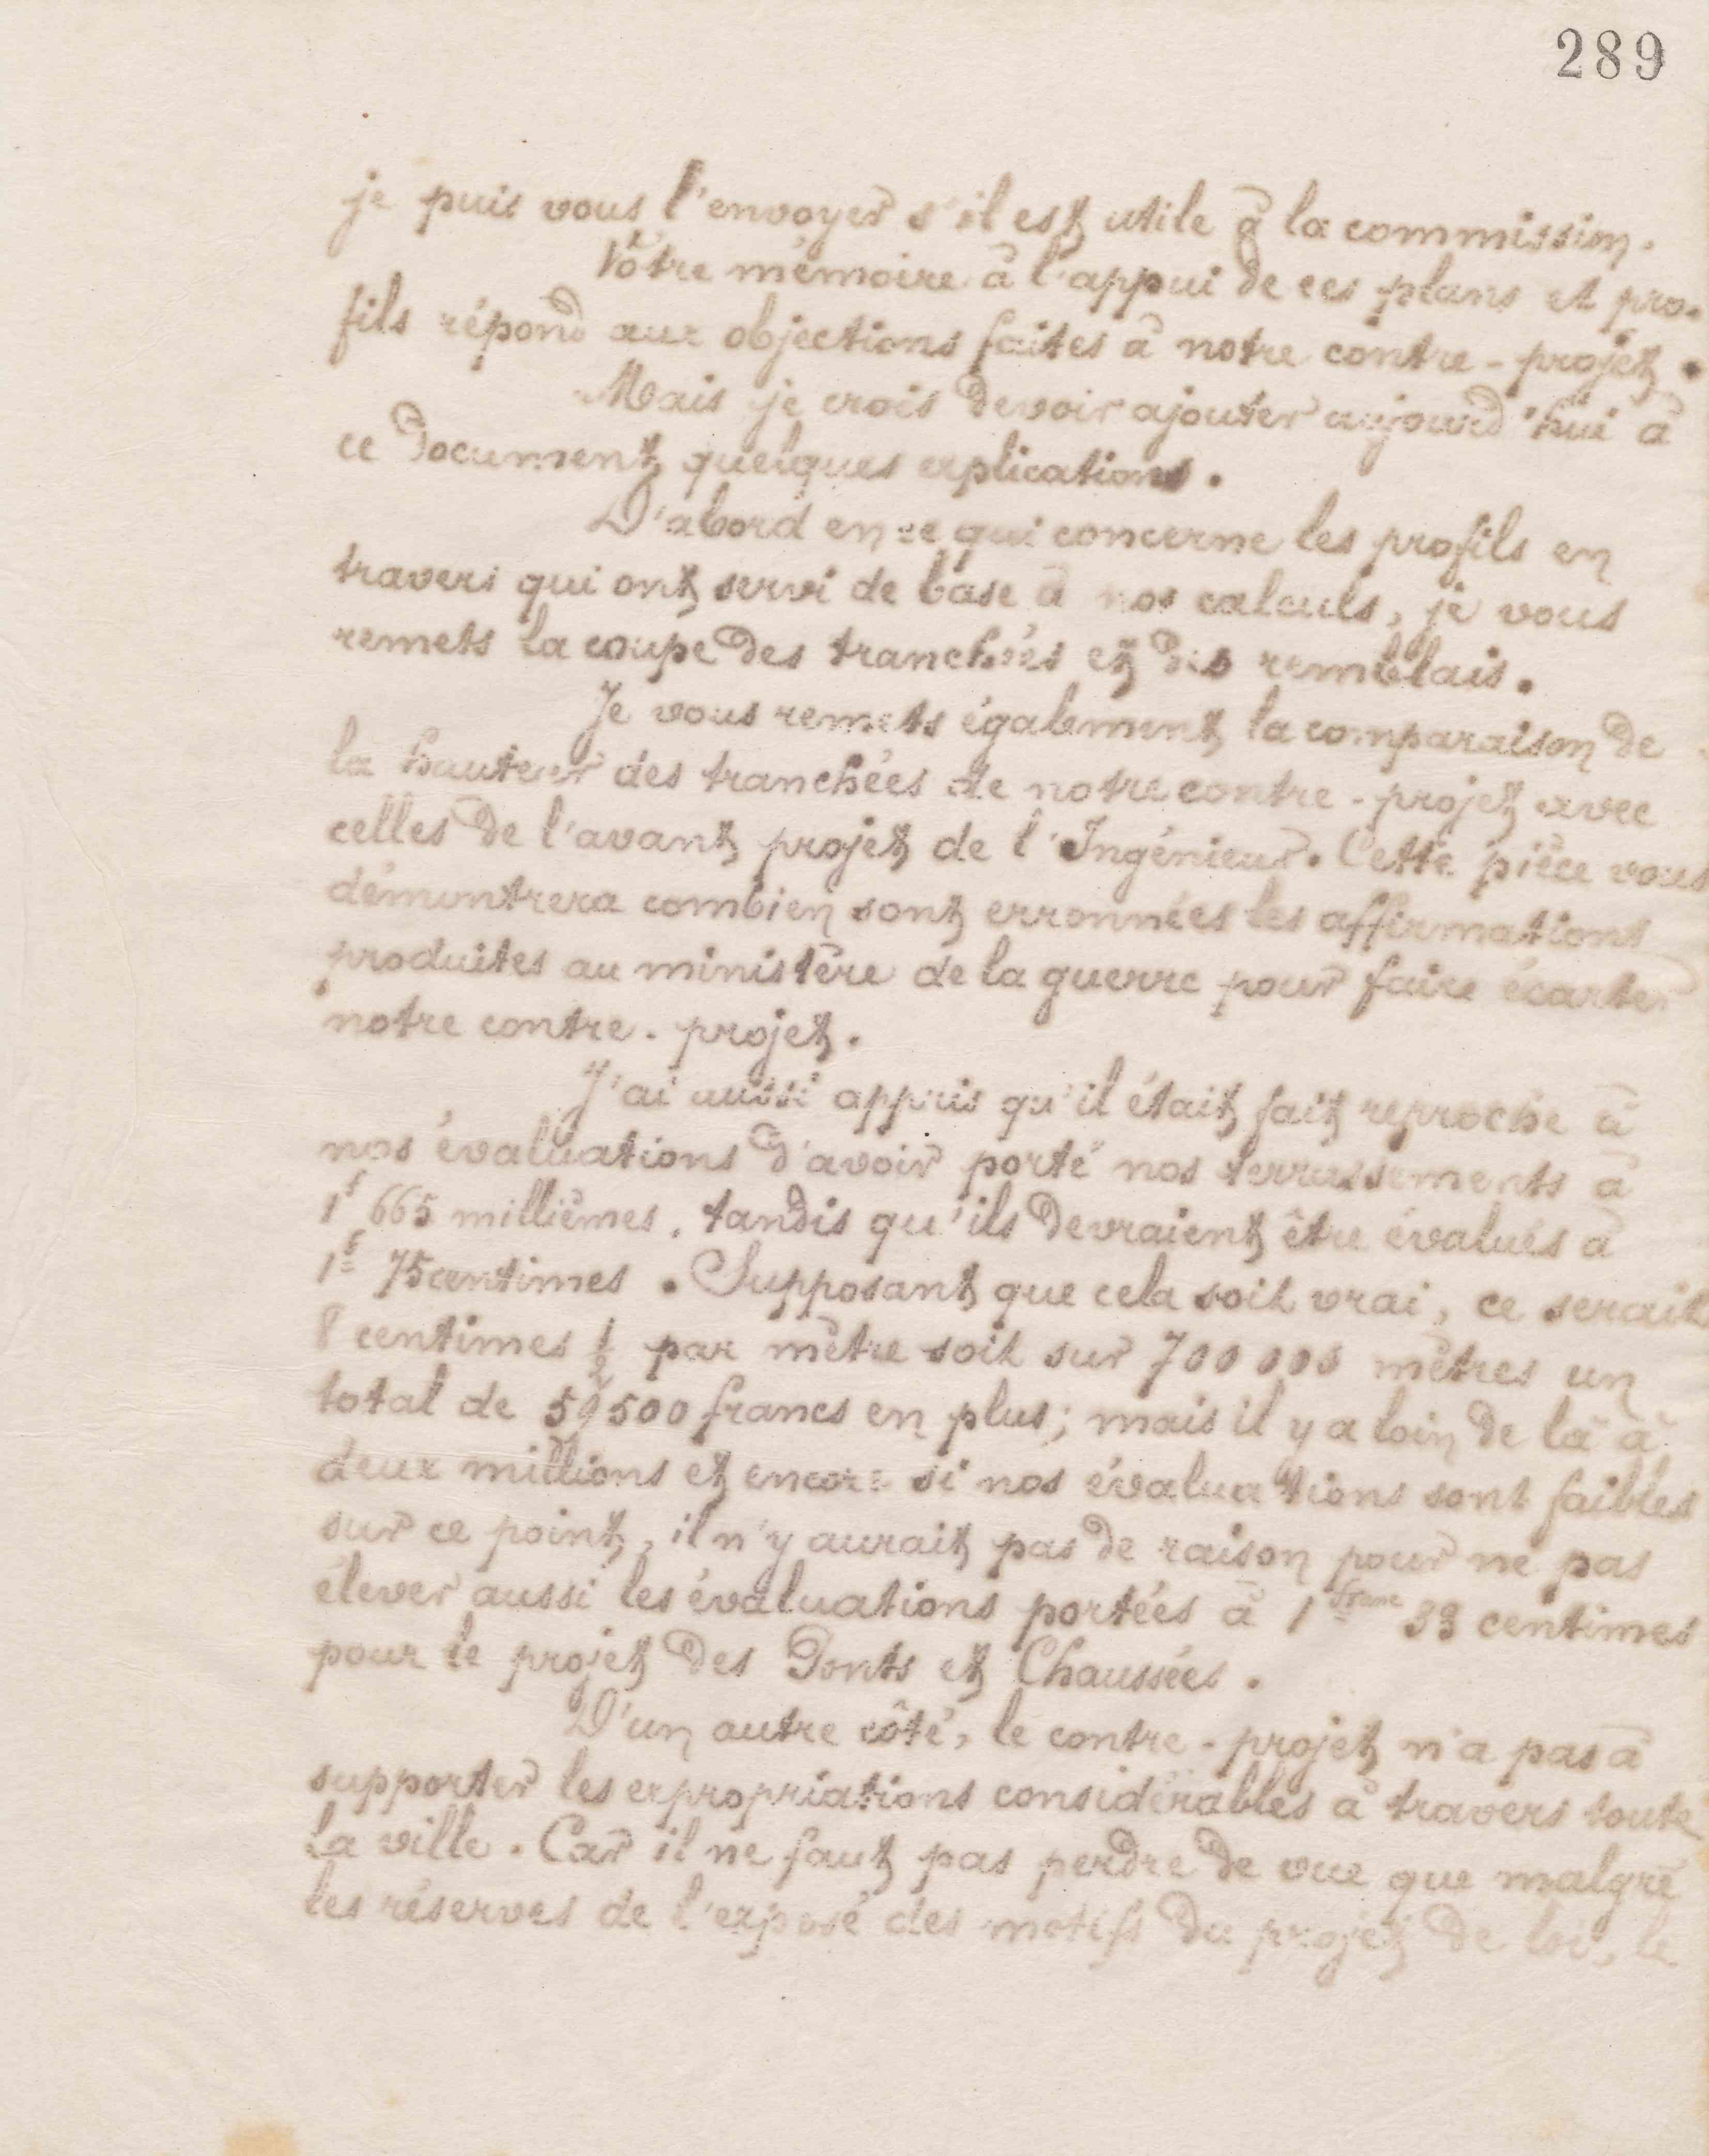 289
je puis vous l'envoyer s'il est utile à la commission.
Vôtre mémoire à l'appui de ces plans et pro-
fils répond aux objections faites à notre contre-projet.
Mais je crois devoir ajouter aujourd'hui à
ce document quelques explications.
D'abord en ce qui concerne les profils en
travers qui ont servi de base à nos calculs, je vous
remets la coupe des tranchées et des remblais.
Je vous remets également la comparaison de
la hauteur des tranchées de notre contre-projet avec
celles de l'avant projet de l'Ingénieur. Cette pièce vous
démontrera combien sont erronnées les affirmations
produites au ministère de la guerre pour faire écarter
notre contre-projet.
J'ai aussi appris qu'il était fait reproche à
nos évaluations d'avoir porté nos terrassements à
1f 665 millièmes, tandis qu'ils devraient être évalués à
1f 75 centimes. Supposant que cela soit vrai, ce serait
8 centimes 1/2 par mètre soit sur 700 000 mètres un
total de 59500 francs en plus; mais il y a loin de là à
deux millions et encore si nos évaluations sont faibles
sur ce point, il n'y aurait pas de raison pour ne pas
élever aussi les évaluations portées à 1 franc 33 centimes
pour le projet des Ponts et Chaussées.
D'un autre côté, le contre-projet n'a pas à
supporter les expropriations considérables à travers toute
la ville. Car il ne faut pas perdre de vue que malgré
les réserves de l'exposé des motifs du projet de loi, le